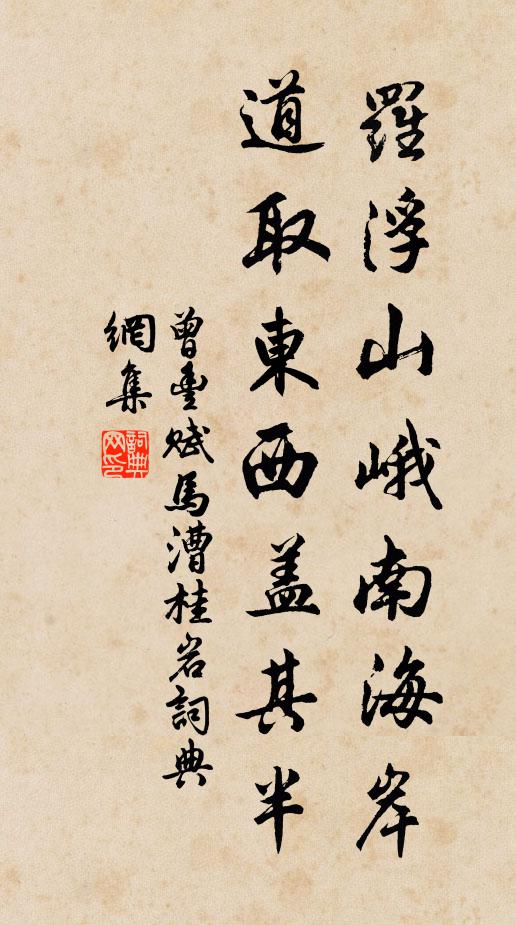 羅浮山峨南海岸
道取東西盖其半
曾豊賦馬漕桂岩詞典
網集
詞典網印